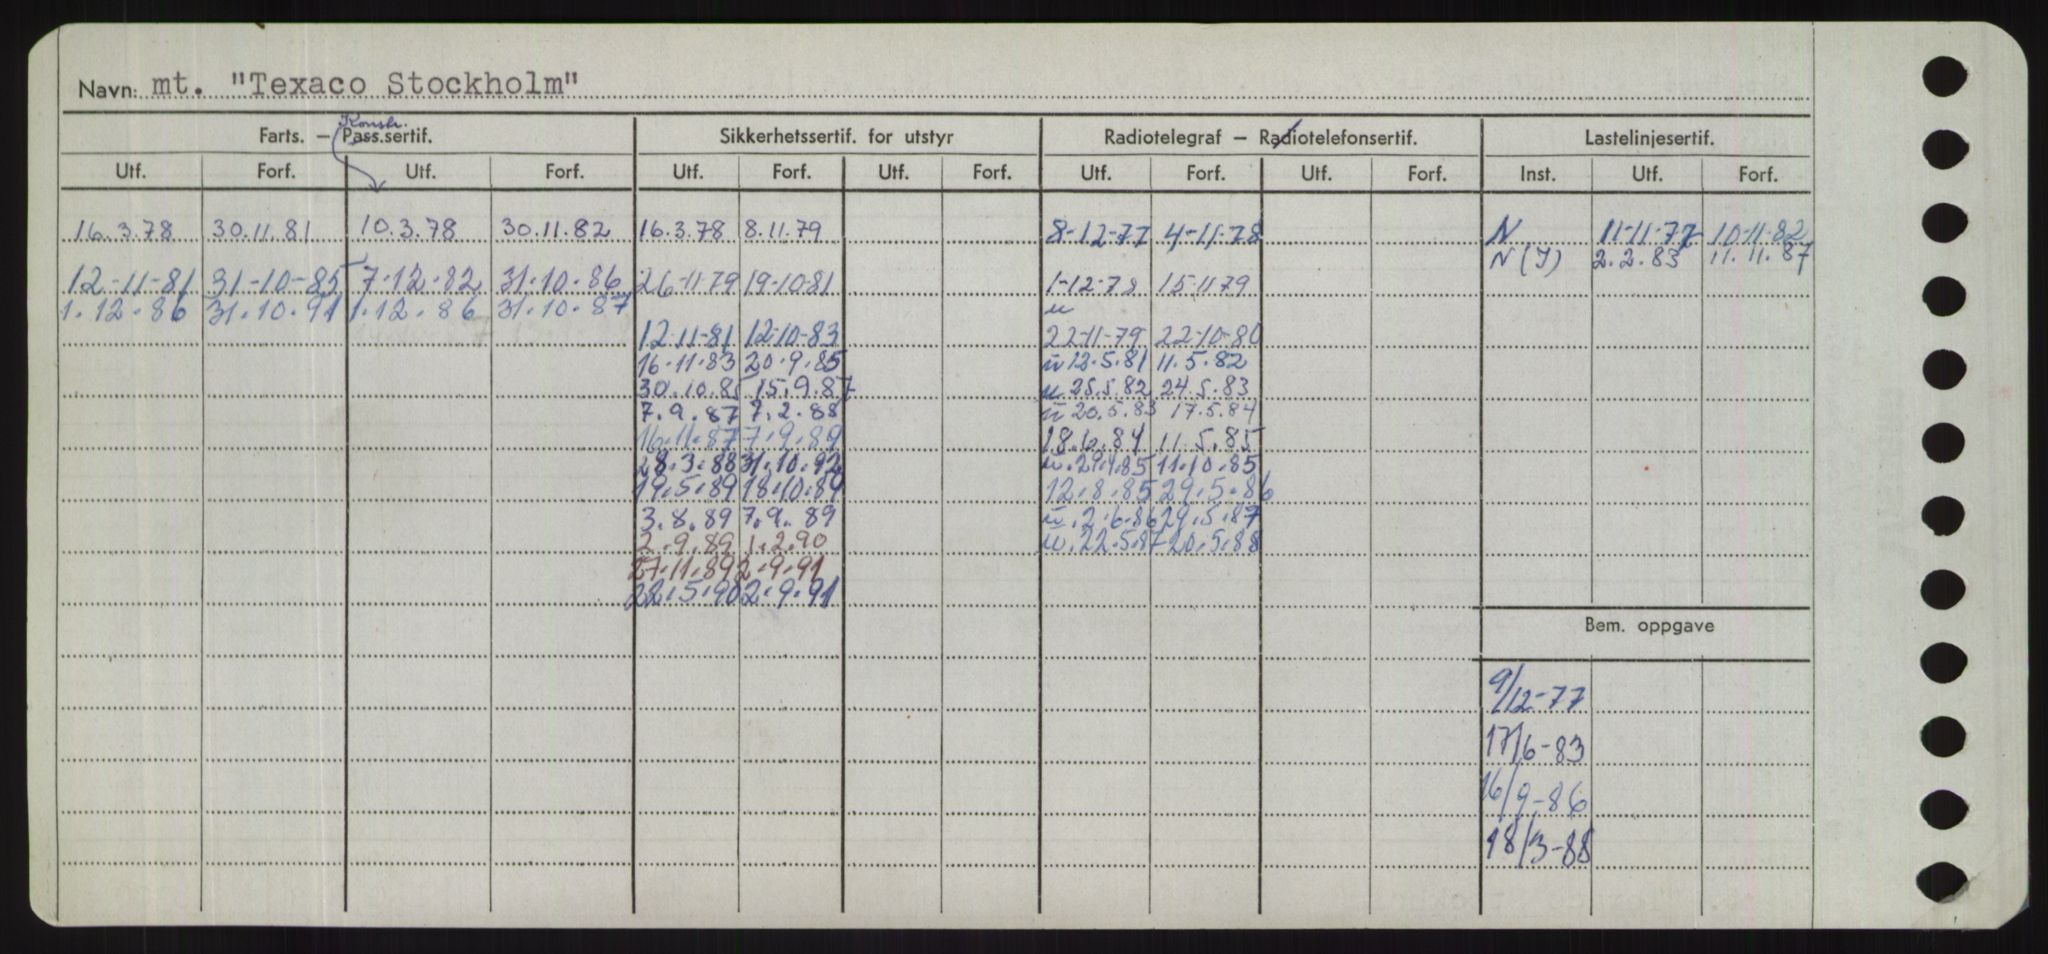 Navn: mt. "Texaco Stockholm"
Konstr.
Farts. — Pass.sertif. Sikkerhetssertif. for utstyr Radiotelegraf — Radiotelefonsertif. Lastelinjesertif.
Utf. Forf. Utf. Forf. Utf. Forf. Utf. Forf. Utf. Forf. Utf. Forf. Inst. Utf. Forf.
16.3.78 30.11.81 10.3.78 30.11.82 16.3.78 8.11.79 8-12-77 4-11-78 N 11-11-77 10-11-82
N (I) 2.2.83 11.11.87
12-11-81 31-10-85 7.12.82 31.10.86 26-11-79 19-10-81 1-12-78 15-11-79
1.12.86 31.10.91 1.12.86 31.10.87 u
12-11-81 12-10-83 22-11-79 22-10-80
16.11.83 20.9.85 u 12.5.81 11.5.82
30.10.85 15.9.87 u 25.5.82 24.5.83
7.9.87 7.2.88 u 20.5.83 17.5.84
16.11.87 7.9.89 18.6.84 11.5.85
28.3.88 31.10.92 u. 29.4.85 11.10.85
19.5.89 18.10.89 12.8.85 29.5.86
3.8.89 7.9.89 u. 2.6.86 29.5.87
2.9.89 1.2.90 u. 22.5.87 20.5.88
27.11.89 2.9.91
22.5.90 2.9.91
Bem. oppgave
9/12-77
17/6-83
16/9-86
18/3-88